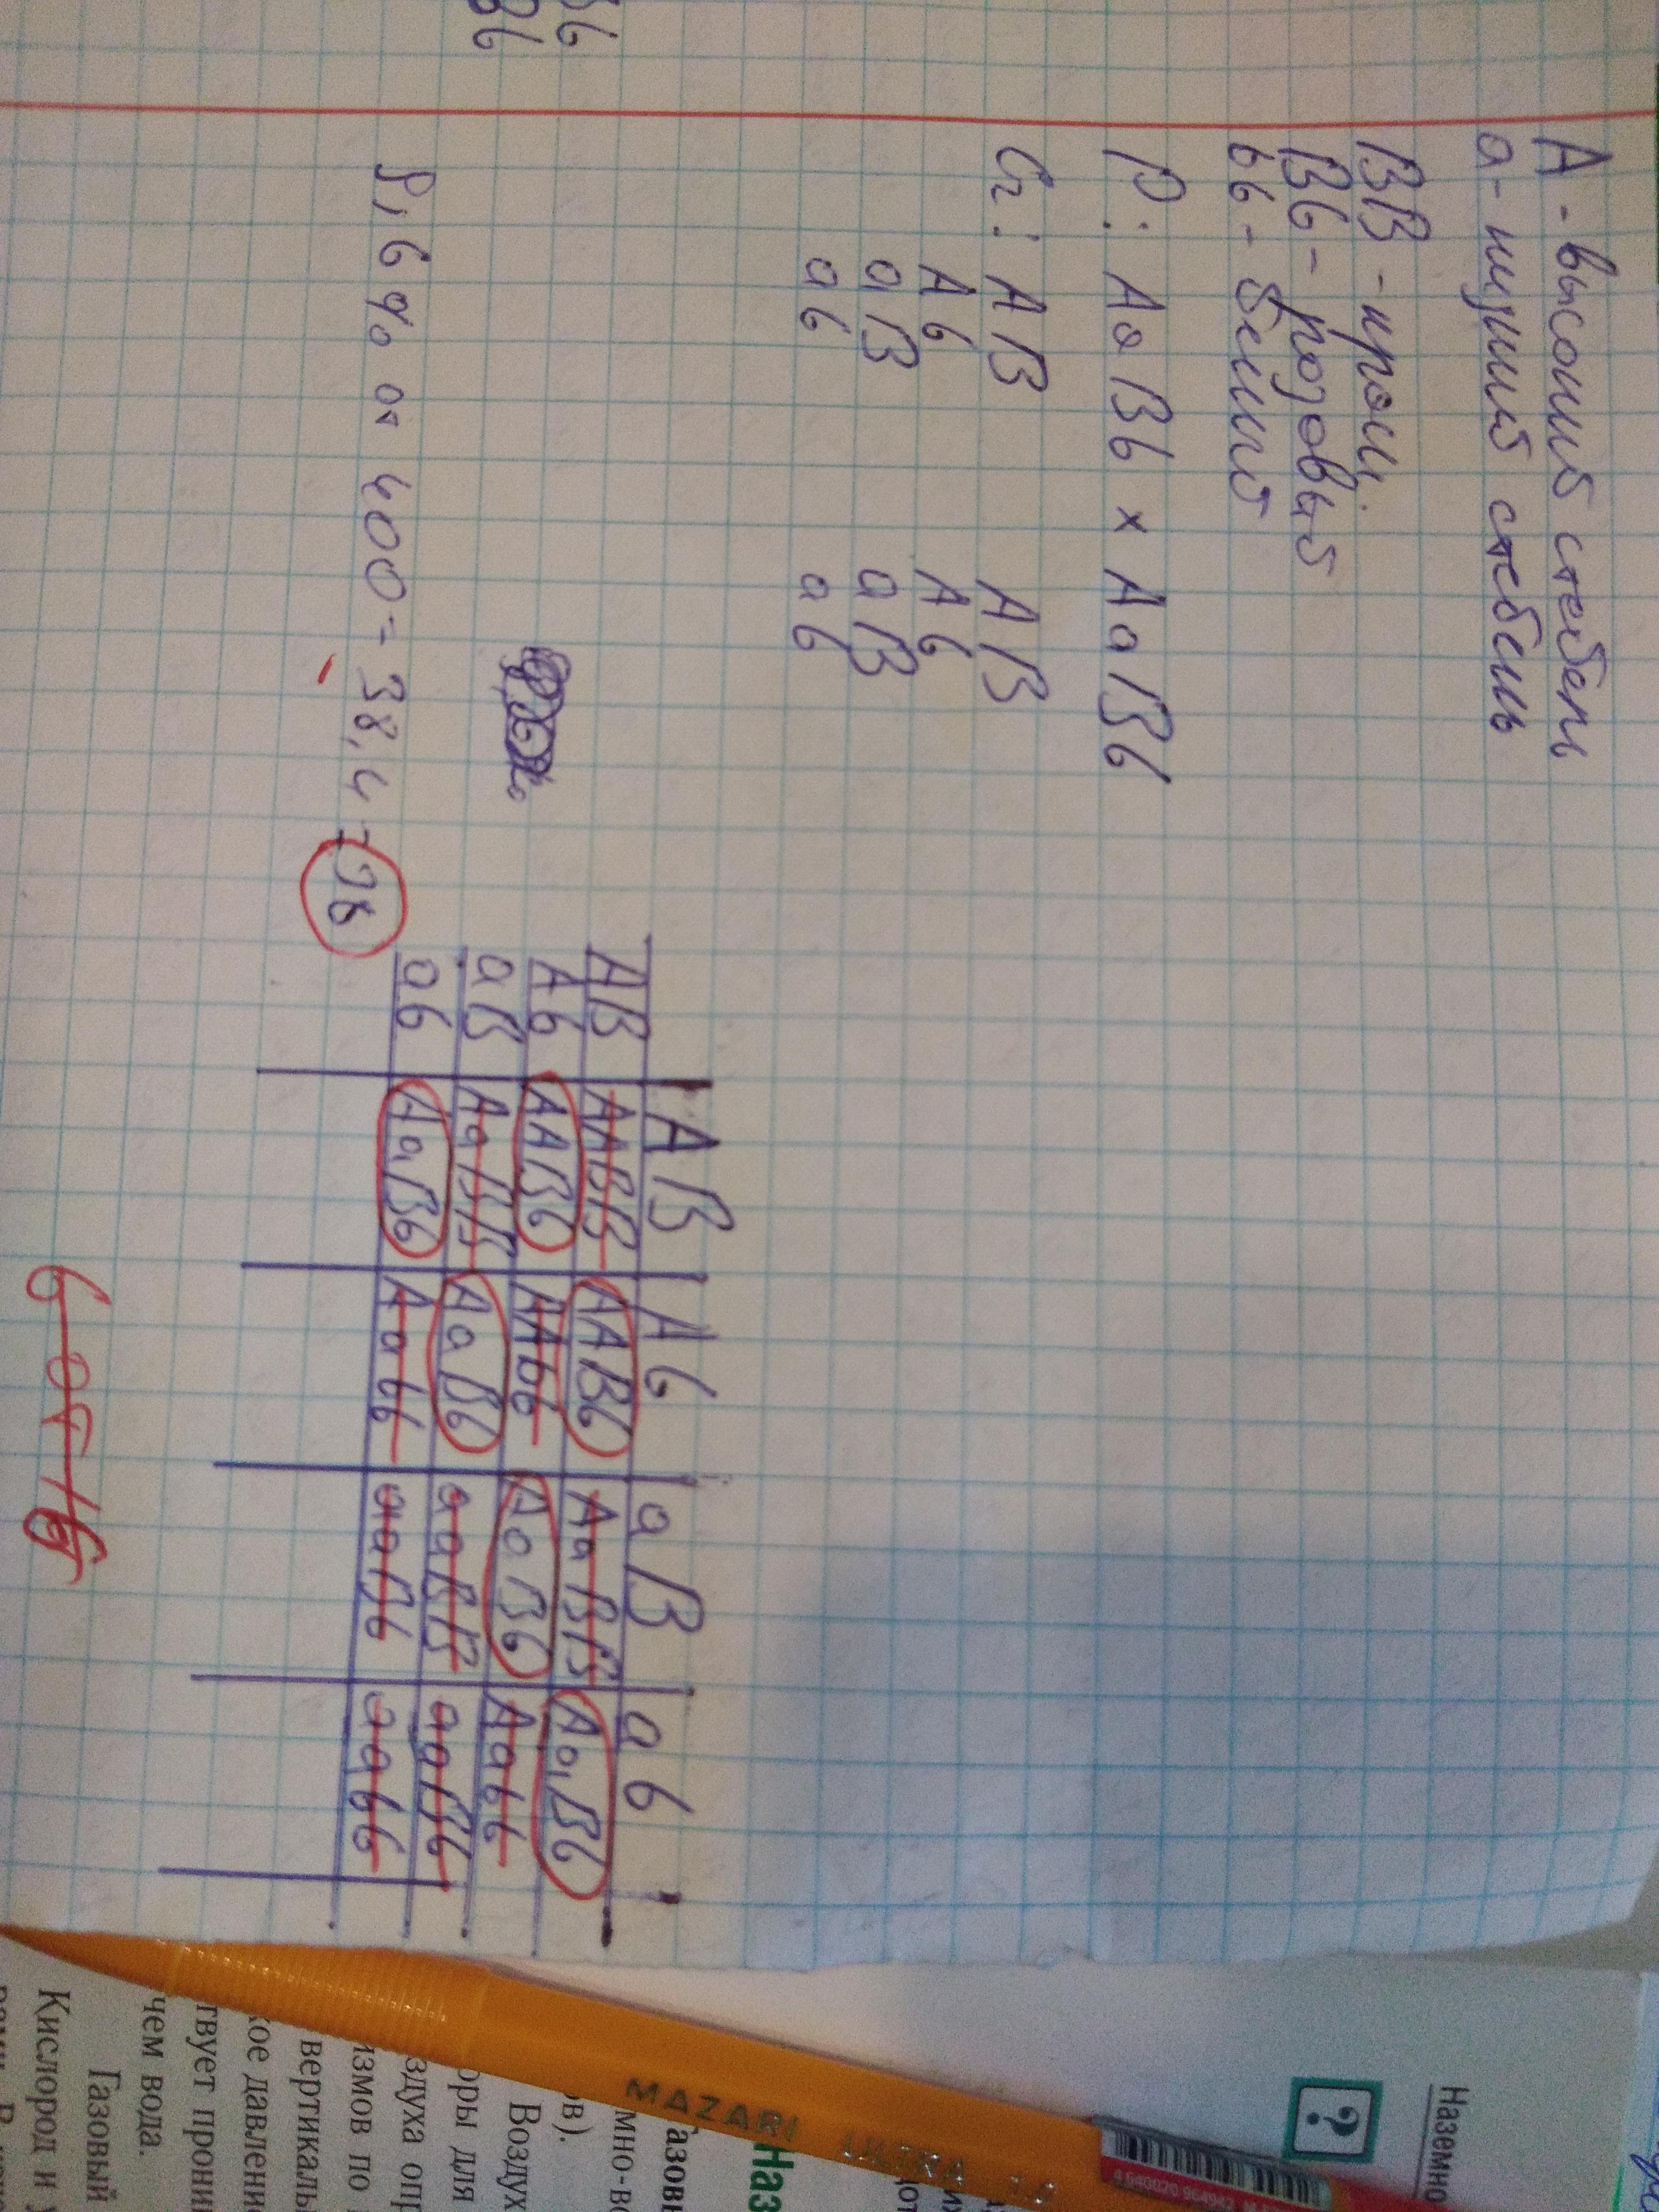 А - высокий стебель
а - низкий стебель
ВВ - крас.
Вв - розовый
вв - белый
Р: АаВв х АаВв
G: АВ АВ
Ав Ав
аВ аВ
ав ав
АВ Ав аВ ав
АВ ААВВ ААВв АаВВ АаВв
Ав ААВв ААвв АаВв Аавв
аВ АаВВ АаВв ааВВ ааВв
ав АаВв Аавв ааВв аавв
9,6% от 400 = 38,4 38
6 от 16
Наземно
?
Наз
Газов
мно-в
ов).
Воздух
оры для
здуха опр
измов по
вертикаль
кое давлени
твует прони
чем вода.
Газовый
Кислород и у
MAZARI ULTRA